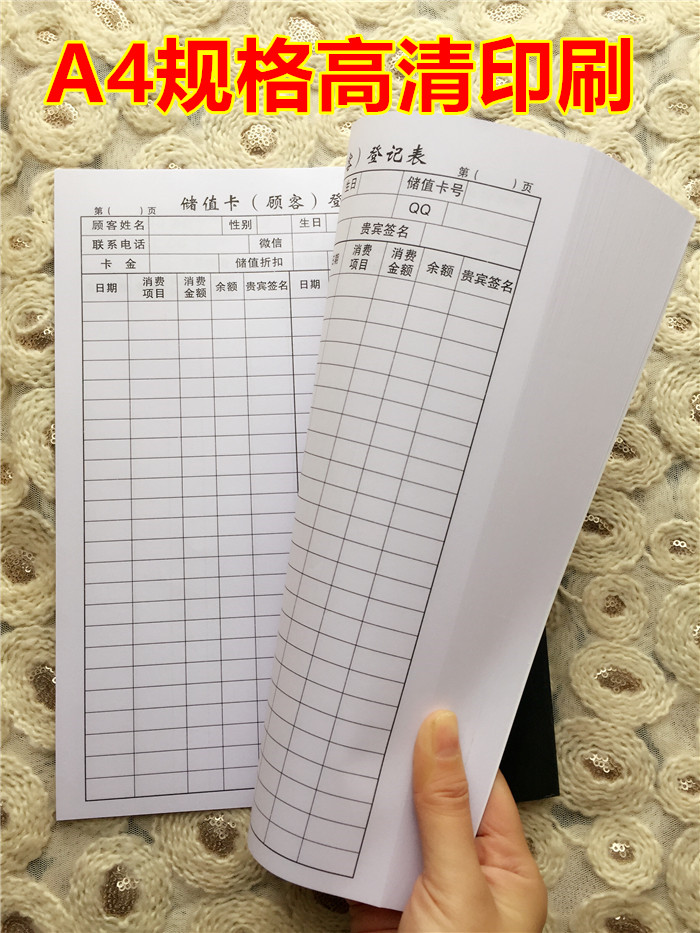 A4规格高清印刷
储值卡（顾客）登
第（ ）页
顾客姓名 性别 生日
联系电话 微信
卡 金 储值折扣
日期 消费项目 消费金额 余额 贵宾签名 日期
）登记表
第（ ）页
生日 储值卡号
QQ
贵宾签名
消费项目 消费金额 余额 贵宾签名